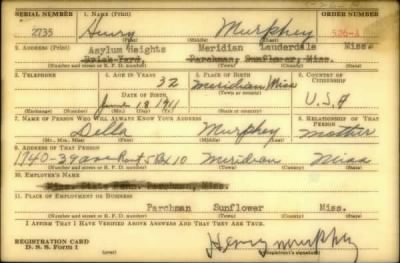 SERIAL NUMBER 1. NAME (Print) ORDER NUMBER
2735 Henry Murphey 526-A
(First) (Middle) (Last)
2. ADDRESS (Print)
Asylum Heights Meridian Lauderdale Miss.
Brick Yard, Parchman, Sunflower, Miss.
(Number and street or R. F. D. number) (Town) (County) (State)
3. TELEPHONE 4. AGE IN YEARS 5. PLACE OF BIRTH 6. COUNTRY OF CITIZENSHIP
32 Meridian Miss
DATE OF BIRTH
June 18 1911 U.S.A
(Exchange) (Number) (Mo.) (Day) (Yr.) (Town or county) (State or country)
7. NAME OF PERSON WHO WILL ALWAYS KNOW YOUR ADDRESS 8. RELATIONSHIP OF THAT PERSON
Della Murphey mother
(Mr., Mrs., Miss) (First) (Middle) (Last)
9. ADDRESS OF THAT PERSON
1740-39 ave Rout 5 Box 10 Meridian Miss
(Number and street or R. F. D. number) (Town) (County) (State)
10. EMPLOYER'S NAME
Miss. State Penn. Parchman, Miss.
11. PLACE OF EMPLOYMENT OR BUSINESS
Parchman Sunflower Miss.
(Number and street or R. F. D. number) (Town) (County) (State)
I AFFIRM THAT I HAVE VERIFIED ABOVE ANSWERS AND THAT THEY ARE TRUE.
REGISTRATION CARD
D. S. S. Form 1 Henry Murphy
(Registrant's signature)